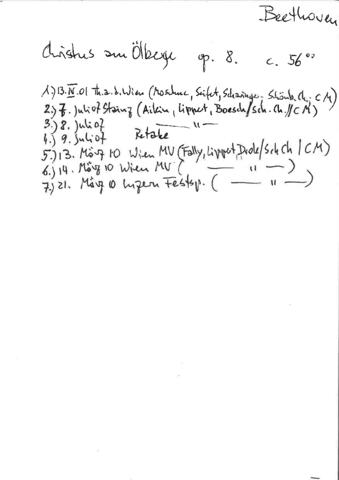 Beethoven
Christus am Ölberge op. 8. c. 56'00''
1.) 13. IV. 01 Th. a. d. Wien ( Schönb. Ch; CM)
2.) 7. Juli 07 Stainz (Aikin, Lippert, Boesch/Sch. Ch. // CM)
3.) 8. Juli 07 — " —
4.) 9. Juli 07 Retake
5.) 13. März 10 Wien MV (Fally, Lippert, /Sch Ch / CM)
6.) 14. März 10 Wien MV ( — " — )
7.) 21. März 10 Luzern Festsp. ( — " — )